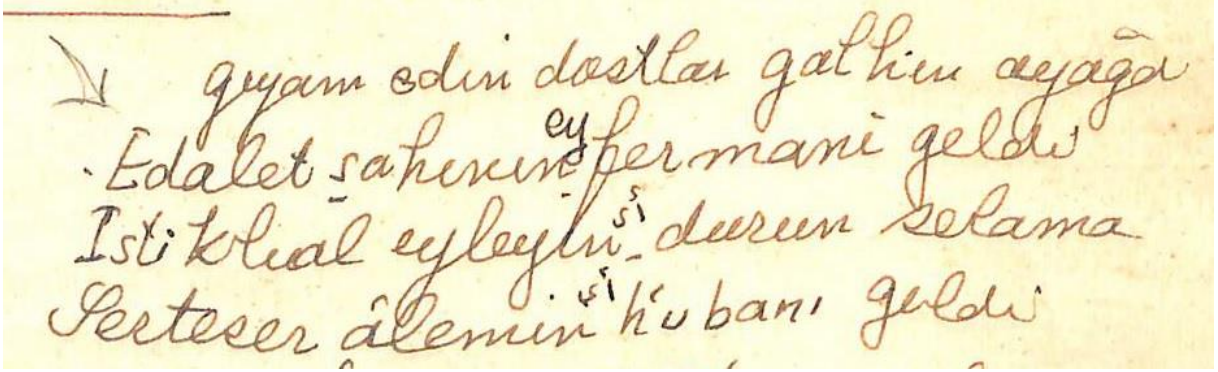 gıyam edin dostlar galhın ayağa
Edalet şahının ey fermani geldi
Istikbal eyleyin şi durun selama
Serteser âlemin şi hubanı geldi